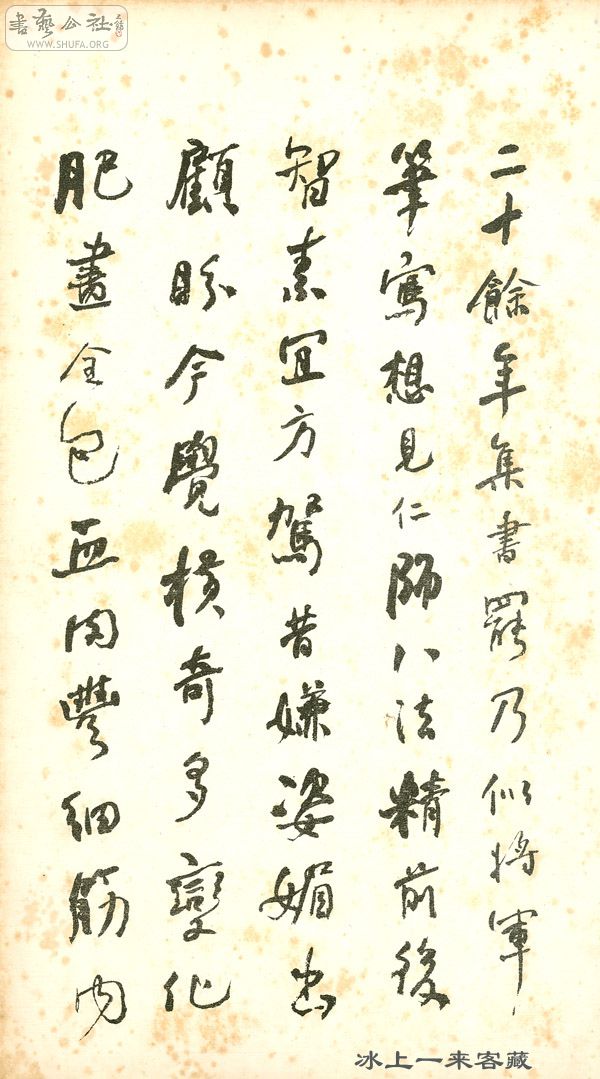 書藝公社
WWW.SHUFA.ORG
二十餘年集書罷乃似將軍
筆寫想見仁師八法精前後
智素宜方駕昔嫌姿媚
顧盼今覺横奇多變化
肥畫全包血肉豐細筋內
冰上一来客藏